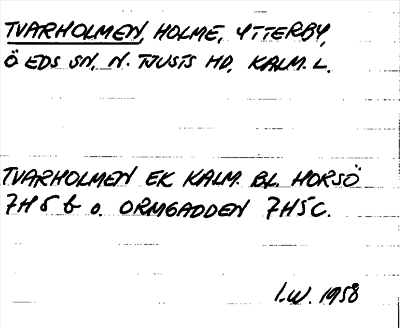 TVARHOLMEN, HOLME, YTTERBY,
Ö EDS SN, N. TJUSTS HD, KALM. L.
TVARHOLMEN EK KALM. BL. HORSÖ
7H5b o. ORMGADDEN 7H5C.
I.W. 1958